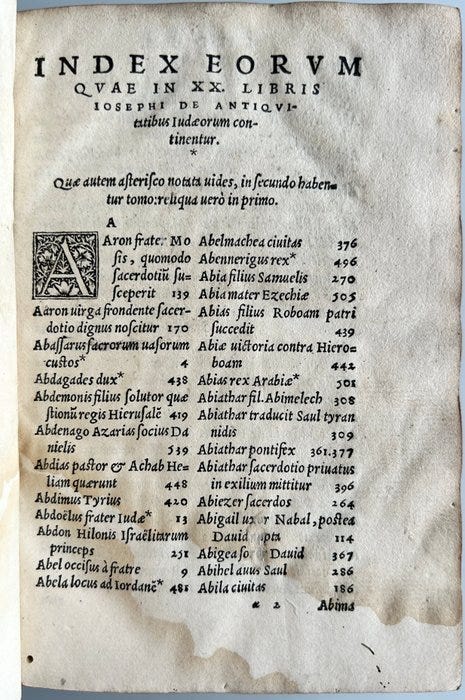 INDEX EORVM
QVAE IN XX. LIBRIS
IOSEPHI DE ANTIQVI-
tatibus Iudæorum con-
tinentur.
*
Quæ autem asterisco notata uides, in secundo haben-
tur tomo: reliqua uerò in primo.
A
AAron frater Mo
sis, quomodo
sacerdotiũ su-
sceperit 139
Aaron uirga frondente sacer-
dotio dignus noscitur 170
Abassarus sacrorum uasorum
custos* 4
Abdagades dux* 438
Abdemonis filius solutor quæ
stionũ regis Hierusalẽ 419
Abdenago Azarias socius Da
nielis 539
Abdias pastor & Achab He-
liam quærunt 448
Abdimus Tyrius 420
Abdoëlus frater Iudæ* 13
Abdon Hilonis Israëlitarum
princeps 251
Abel occisus à fratre 9
Abela locus ad Iordanẽ* 481
Abelmachea ciuitas 376
Abennerigus rex* 496
Abia filius Samuelis 270
Abia mater Ezechiæ 505
Abias filius Roboam patri
succedit 439
Abiæ uictoria contra Hiero-
boam 442
Abias rex Arabiæ* 501
Abiathar fil. Abimelech 308
Abiathar traducit Saul tyran
nidis 309
Abiathar pontifex 361.377
Abiathar sacerdotio priuatus
in exilium mittitur 396
Abiezer sacerdos 264
Abigail uxor Nabal, postea
Dauid 114
Abigea soror Dauid 367
Abihel auus Saul 286
Abila ciuitas 186
a 2 Abima